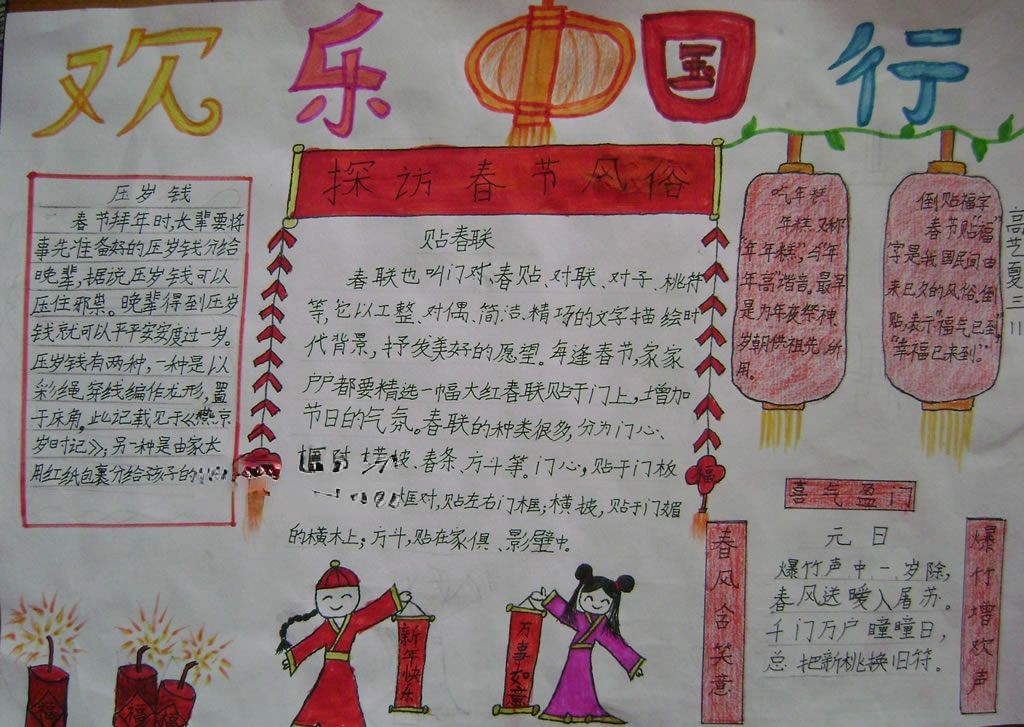 欢乐中国行
探访春节风俗
压岁钱
春节拜年时,长辈要将
事先准备好的压岁钱分给
晚辈,据说压岁钱可以
压住邪祟。晚辈得到压岁
钱就可以平平安安度过一岁。
压岁钱有两种,一种是以
彩绳穿线编作龙形,置
于床角。此记载见于《燕京
岁时记》;另一种是由家长
用红纸包裹分给孩子的
贴春联
春联也叫门对、春贴、对联、对子、桃符
等,它以工整、对偶、简洁、精巧的文字描绘时
代背景,抒发美好的愿望。每逢春节,家家
户户都要精选一幅大红春联贴于门上,增加
节日的气氛。春联的种类很多,分为门心、
框对、横披、春条、方斗等。门心,贴于门板
框对,贴左右门框;横披,贴于门媚
的横木上;方斗,贴在家俱、影壁中。
福
吃年糕
年糕又称
"年年糕",与"年
年高"谐音,最早
是为年夜祭神、
岁朝供祖先所
用。
倒贴福字
春节贴"福"
字是我国民间由
来已久的风俗。倒
贴,表示"福气已到"
"幸福已来到。"
高艺夏三
喜气盈门
春风含笑意
元日
爆竹声中一岁除,
春风送暖入屠苏。
千门万户瞳瞳日,
总把新桃换旧符。
爆竹增欢声
新年快乐
万事如意
福
福
福